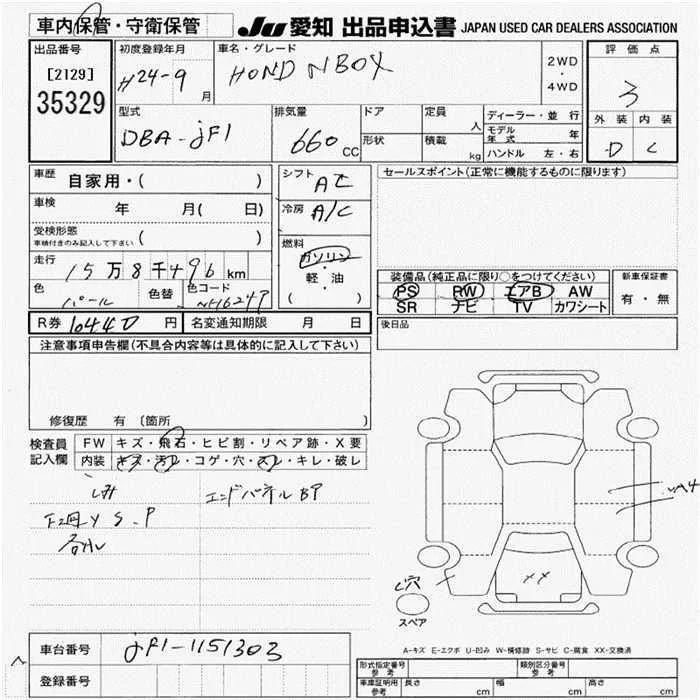 車内保管・守衛保管 JU 愛知 出品申込書 JAPAN USED CAR DEALERS ASSOCIATION
出品番号
[2129]
35329
初度登録年月
H24-9 月
車名・グレード
HOND NBOX
2WD
・
4WD
評価点
3
外装 内装
D C
型式
DBA-JF1
排気量
660 cc
ドア
形状
定員 人
積載 kg
ディーラー・並行
モデル年式 年
ハンドル 左・右
車歴 自家用・( )
車検 年 月( 日)
受検形態
車検付きのみ記入して下さい ( )
走行 15万8千496km
色 パール
色替
色コード NH624P
シフト AT
冷房 A/C
燃料
ガソリン
・
軽・油
( )
R券 10440 円 名変通知期限 月 日
セールスポイント(正常に機能するものに限ります)
装備品(純正品に限り○をつけてください)
PS PW エアB AW
SR ナビ TV カワシート
新車保証書
有・無
後日品
注意事項申告欄(不具合内容等は具体的に記入して下さい)
修復歴 有 (箇所
検査員記入欄
FW キズ・飛石・ヒビ割・リペア跡・X要
内装 キズ・汚れ・コゲ・穴・スレ・キレ・破レ
エンドパネルBP
S.P
XX
穴
スペア
A-キズ E-エクボ U-凹み W-補修跡 S-サビ C-腐食 XX-交換済
車台番号 JF1-1151303
登録番号
形式指定番号
参考
類別区分番号
参考
車庫証明用
参考
長さ cm 幅 cm 高さ cm